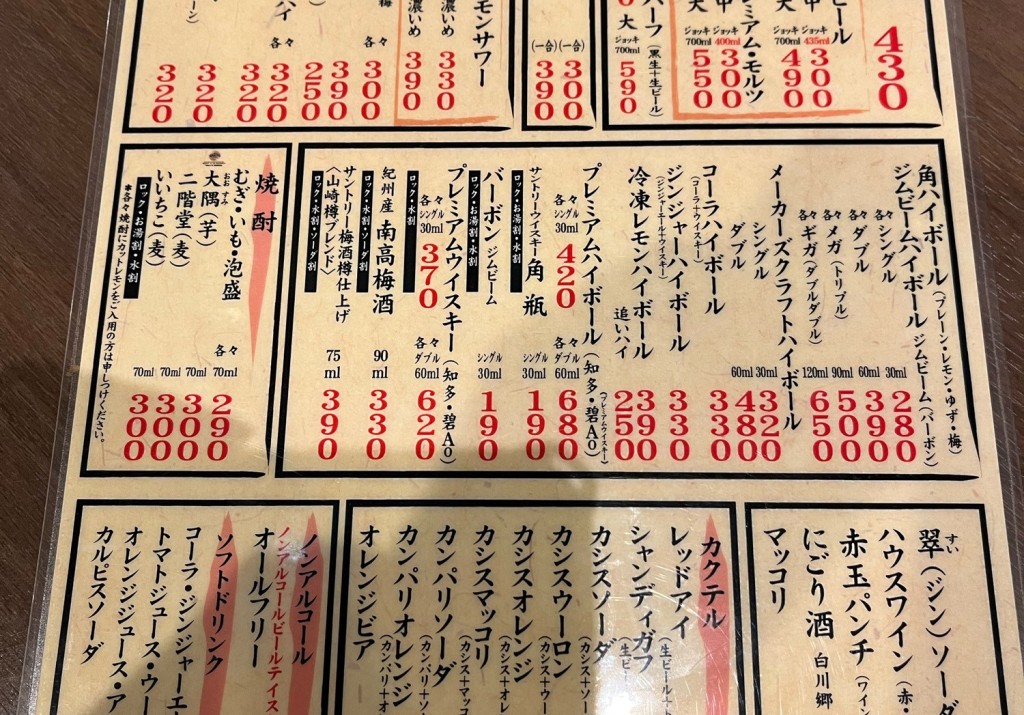 430
ビール
中
ジョッキ
435ml
300
大
ジョッキ
700ml
490
プレミアム・モルツ
中
ジョッキ
400ml
300
大
ジョッキ
700ml
550
ハーフ(黒生+生ビール)
大
ジョッキ
700ml
590
(一合)
300
(一合)
390
レモンサワー
330
濃いめ
390
濃いめ
梅
各々
300
390
250
ハイ
各々
320
320
320
320
角ハイボール(プレーン・レモン・ゆず・梅)
ジムビームハイボール ジムビーム(バーボン)
各々シングル 30ml 280
各々ダブル 60ml 390
各々メガ(トリプル) 90ml 500
各々ギガ(ダブルダブル) 120ml 650
メーカーズクラフトハイボール
シングル 30ml 320
ダブル 60ml 480
コーラハイボール 330
(コーラ+ウイスキー)
ジンジャーハイボール 330
(ジンジャーエール+ウイスキー)
冷凍レモンハイボール 390
追いハイ 250
プレミアムハイボール(知多・碧Ao)
(プレミアムウイスキー)
各々シングル 30ml 420
各々ダブル 60ml 680
サントリーウイスキー 角瓶
シングル 30ml 190
ロック・お湯割・水割
バーボン ジムビーム
シングル 30ml 190
ロック・お湯割・水割
プレミアムウイスキー(知多・碧Ao)
各々シングル 30ml 370
各々ダブル 60ml 620
ロック・水割
紀州産 南高梅酒 90ml 330
ロック・水割・ソーダ割
サントリー梅酒樽仕上げ
〈山崎樽ブレンド〉 75ml 390
ロック・水割・ソーダ割
焼酎
むぎ・いも・泡盛 各々 70ml 290
おおすみ
大隅(芋) 70ml 300
二階堂(麦) 70ml 300
いいちこ(麦) 70ml 300
ロック・お湯割・水割
※各々焼酎にカットレモンをご入用の方は申しつけください。
すい
翠(ジン)ソーダ
ハウスワイン(赤・
赤玉パンチ(ワイン
にごり酒 白川郷
マッコリ
カクテル
レッドアイ(生ビール+ト
シャンディガフ(生ビー
カシスソーダ
カシスウーロン(カシス+ウー
カシスオレンジ(カシス+オレ
カシスマッコリ(カシス+マッコ
カンパリソーダ(カンパリ+ソー
カンパリオレンジ(カンパリ+オ
オレンジビア
ノンアルコール
ノンアルコールビールテイス
オールフリー
ソフトドリンク
コーラ・ジンジャーエ
トマトジュース・ウー
オレンジジュース・ア
カルピスソーダ